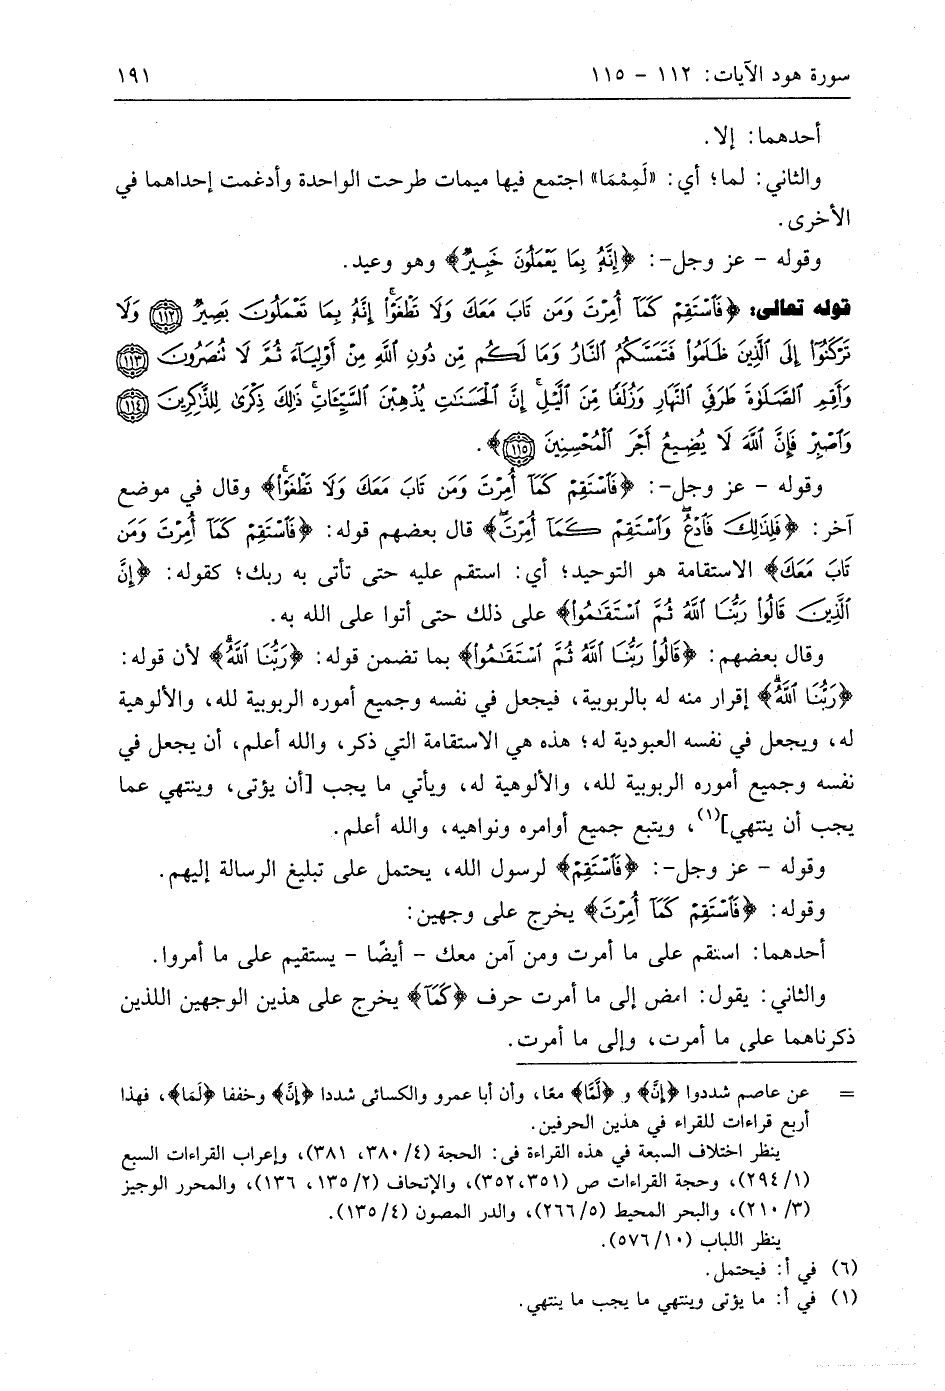 سورة هود الآيات: ١١٢ - ١١٥ ١٩١
أحدهما: إلا.
والثاني: لما؛ أي: «لَمِمْمَا» اجتمع فيها ميمات طرحت الواحدة وأدغمت إحداهما في
الأخرى.
وقوله - عز وجل-: ﴿إِنَّهُۥ بِمَا يَعْمَلُونَ خَبِيرٌ﴾ وهو وعيد.
قوله تعالى: ﴿فَٱسْتَقِمْ كَمَآ أُمِرْتَ وَمَن تَابَ مَعَكَ وَلَا تَطْغَوْا۟ ۚ إِنَّهُۥ بِمَا تَعْمَلُونَ بَصِيرٌ ١١٢ وَلَا
تَرْكَنُوٓا۟ إِلَى ٱلَّذِينَ ظَلَمُوا۟ فَتَمَسَّكُمُ ٱلنَّارُ وَمَا لَكُم مِّن دُونِ ٱللَّهِ مِنْ أَوْلِيَآءَ ثُمَّ لَا تُنصَرُونَ ١١٣
وَأَقِمِ ٱلصَّلَوٰةَ طَرَفَىِ ٱلنَّهَارِ وَزُلَفًا مِّنَ ٱلَّيْلِ ۚ إِنَّ ٱلْحَسَنَٰتِ يُذْهِبْنَ ٱلسَّيِّـَٔاتِ ۚ ذَٰلِكَ ذِكْرَىٰ لِلذَّٰكِرِينَ ١١٤
وَٱصْبِرْ فَإِنَّ ٱللَّهَ لَا يُضِيعُ أَجْرَ ٱلْمُحْسِنِينَ ١١٥﴾.
وقوله - عز وجل-: ﴿فَٱسْتَقِمْ كَمَآ أُمِرْتَ وَمَن تَابَ مَعَكَ وَلَا تَطْغَوْا۟ ۚ﴾ وقال في موضع
آخر: ﴿فَلِذَٰلِكَ فَٱدْعُ ۖ وَٱسْتَقِمْ كَمَآ أُمِرْتَ ۖ﴾ قال بعضهم قوله: ﴿فَٱسْتَقِمْ كَمَآ أُمِرْتَ وَمَن
تَابَ مَعَكَ﴾ الاستقامة هو التوحيد؛ أي: استقم عليه حتى تأتى به ربك؛ كقوله: ﴿إِنَّ
ٱلَّذِينَ قَالُوا۟ رَبُّنَا ٱللَّهُ ثُمَّ ٱسْتَقَٰمُوا۟﴾ على ذلك حتى أتوا على الله به.
وقال بعضهم: ﴿قَالُوا۟ رَبُّنَا ٱللَّهُ ثُمَّ ٱسْتَقَٰمُوا۟﴾ بما تضمن قوله: ﴿رَبُّنَا ٱللَّهُ ۗ﴾ لأن قوله:
﴿رَبُّنَا ٱللَّهُ ۗ﴾ إقرار منه له بالربوبية، فيجعل في نفسه وجميع أموره الربوبية لله، والألوهية
له، ويجعل في نفسه العبودية له؛ هذه هي الاستقامة التي ذكر، والله أعلم، أن يجعل في
نفسه وجميع أموره الربوبية لله، والألوهية له، ويأتي ما يجب [أن يؤتى، وينتهي عما
يجب أن ينتهي](١)، ويتبع جميع أوامره ونواهيه، والله أعلم.
وقوله - عز وجل-: ﴿فَٱسْتَقِمْ﴾ لرسول الله، يحتمل على تبليغ الرسالة إليهم.
وقوله: ﴿فَٱسْتَقِمْ كَمَآ أُمِرْتَ﴾ يخرج على وجهين:
أحدهما: استقم على ما أمرت ومن آمن معك - أيضًا - يستقيم على ما أمروا.
والثاني: يقول: امض إلى ما أمرت حرف ﴿كَمَآ﴾ يخرج على هذين الوجهين اللذين
ذكرناهما على ما أمرت، وإلى ما أمرت.
= عن عاصم شددوا ﴿إِنَّ﴾ و ﴿لَمَّا﴾ معًا، وأن أبا عمرو والكسائى شددا ﴿إِنَّ﴾ وخففا ﴿لَمَا﴾، فهذا
أربع قراءات للقراء في هذين الحرفين.
ينظر اختلاف السبعة في هذه القراءة فى: الحجة (٤/ ٣٨٠، ٣٨١)، وإعراب القراءات السبع
(١/ ٢٩٤)، وحجة القراءات ص (٣٥١، ٣٥٢)، والإتحاف (٢/ ١٣٥، ١٣٦)، والمحرر الوجيز
(٣/ ٢١٠)، والبحر المحيط (٥/ ٢٦٦)، والدر المصون (٤/ ١٣٥).
ينظر اللباب (١٠/ ٥٧٦).
(٦) في أ: فيحتمل.
(١) في أ: ما يؤتى وينتهي ما يجب ما ينتهي.